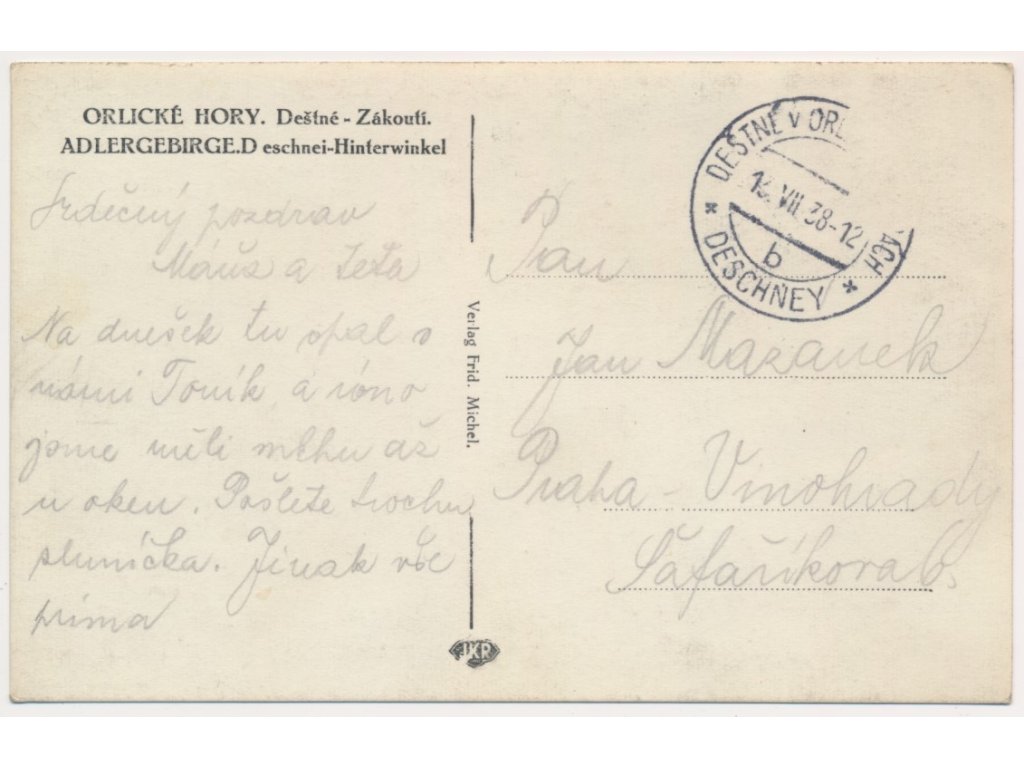 ORLICKÉ HORY. Deštné - Zákoutí.
ADLERGEBIRGE.D eschnei-Hinterwinkel
Srdečný pozdrav
Máňa a teta
Na dnešek tu spal s
námi Toník a ráno
jsme měli mlhu až
u oken. Pošlete trochu
sluníčka. Jinak vše
prima
Verlag Frid. Michel.
JKR
DEŠTNÉ v ORL ACH
VII 38-12
b
* DESCHNEY *
P
Pan
Jan Mazanek
Praha - Vinohrady
Šafaříkova 6.